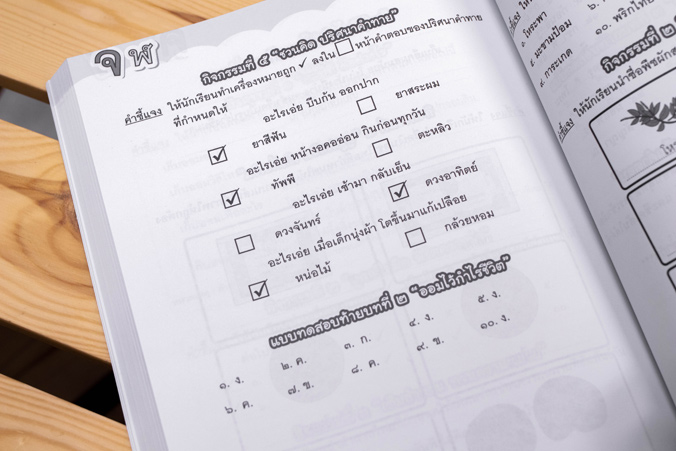 จ ฬ
กิจกรรมที่ ๕ "ชวนคิด ปริศนาคำทาย"
คำชี้แจง ให้นักเรียนทำเครื่องหมายถูก ✓ ลงใน ☐ หน้าคำตอบของปริศนาคำทาย
ที่กำหนดให้
อะไรเอ่ย บีบก้น ออกปาก
☑ ยาสีฟัน ☐ ยาสระผม
อะไรเอ่ย หน้างอคออ่อน กินก่อนทุกวัน
☑ ทัพพี ☐ ตะหลิว
อะไรเอ่ย เช้ามา กลับเย็น
☐ ดวงจันทร์ ☑ ดวงอาทิตย์
อะไรเอ่ย เมื่อเด็กนุ่งผ้า โตขึ้นมาแก้เปลือย
☑ หน่อไม้ ☐ กล้วยหอม
แบบทดสอบท้ายบทที่ ๒ "ออมไว้กำไรชีวิต"
๑. ง. ๒. ค. ๓. ก. ๔. ง. ๕. ง.
๖. ค. ๗. ข. ๘. ค. ๙. ข. ๑๐. ง.
๗. โหระพา
๘. มะขามป้อม
๙. การะเกด
๑๐. พริกไทย
กิจกรรมที่ ๒
คำชี้แจง ให้นักเรียนนำชื่อพืชผัก